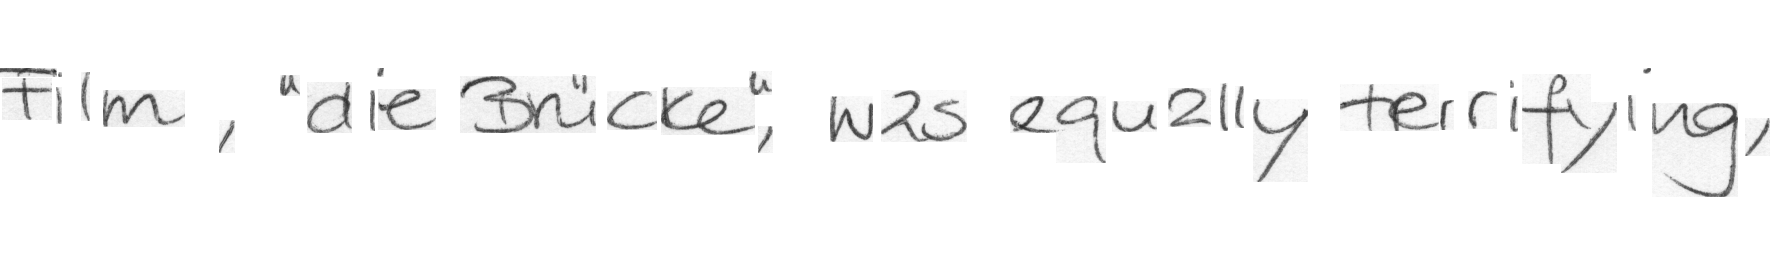 Film, "die Brücke", was equally terrifying,